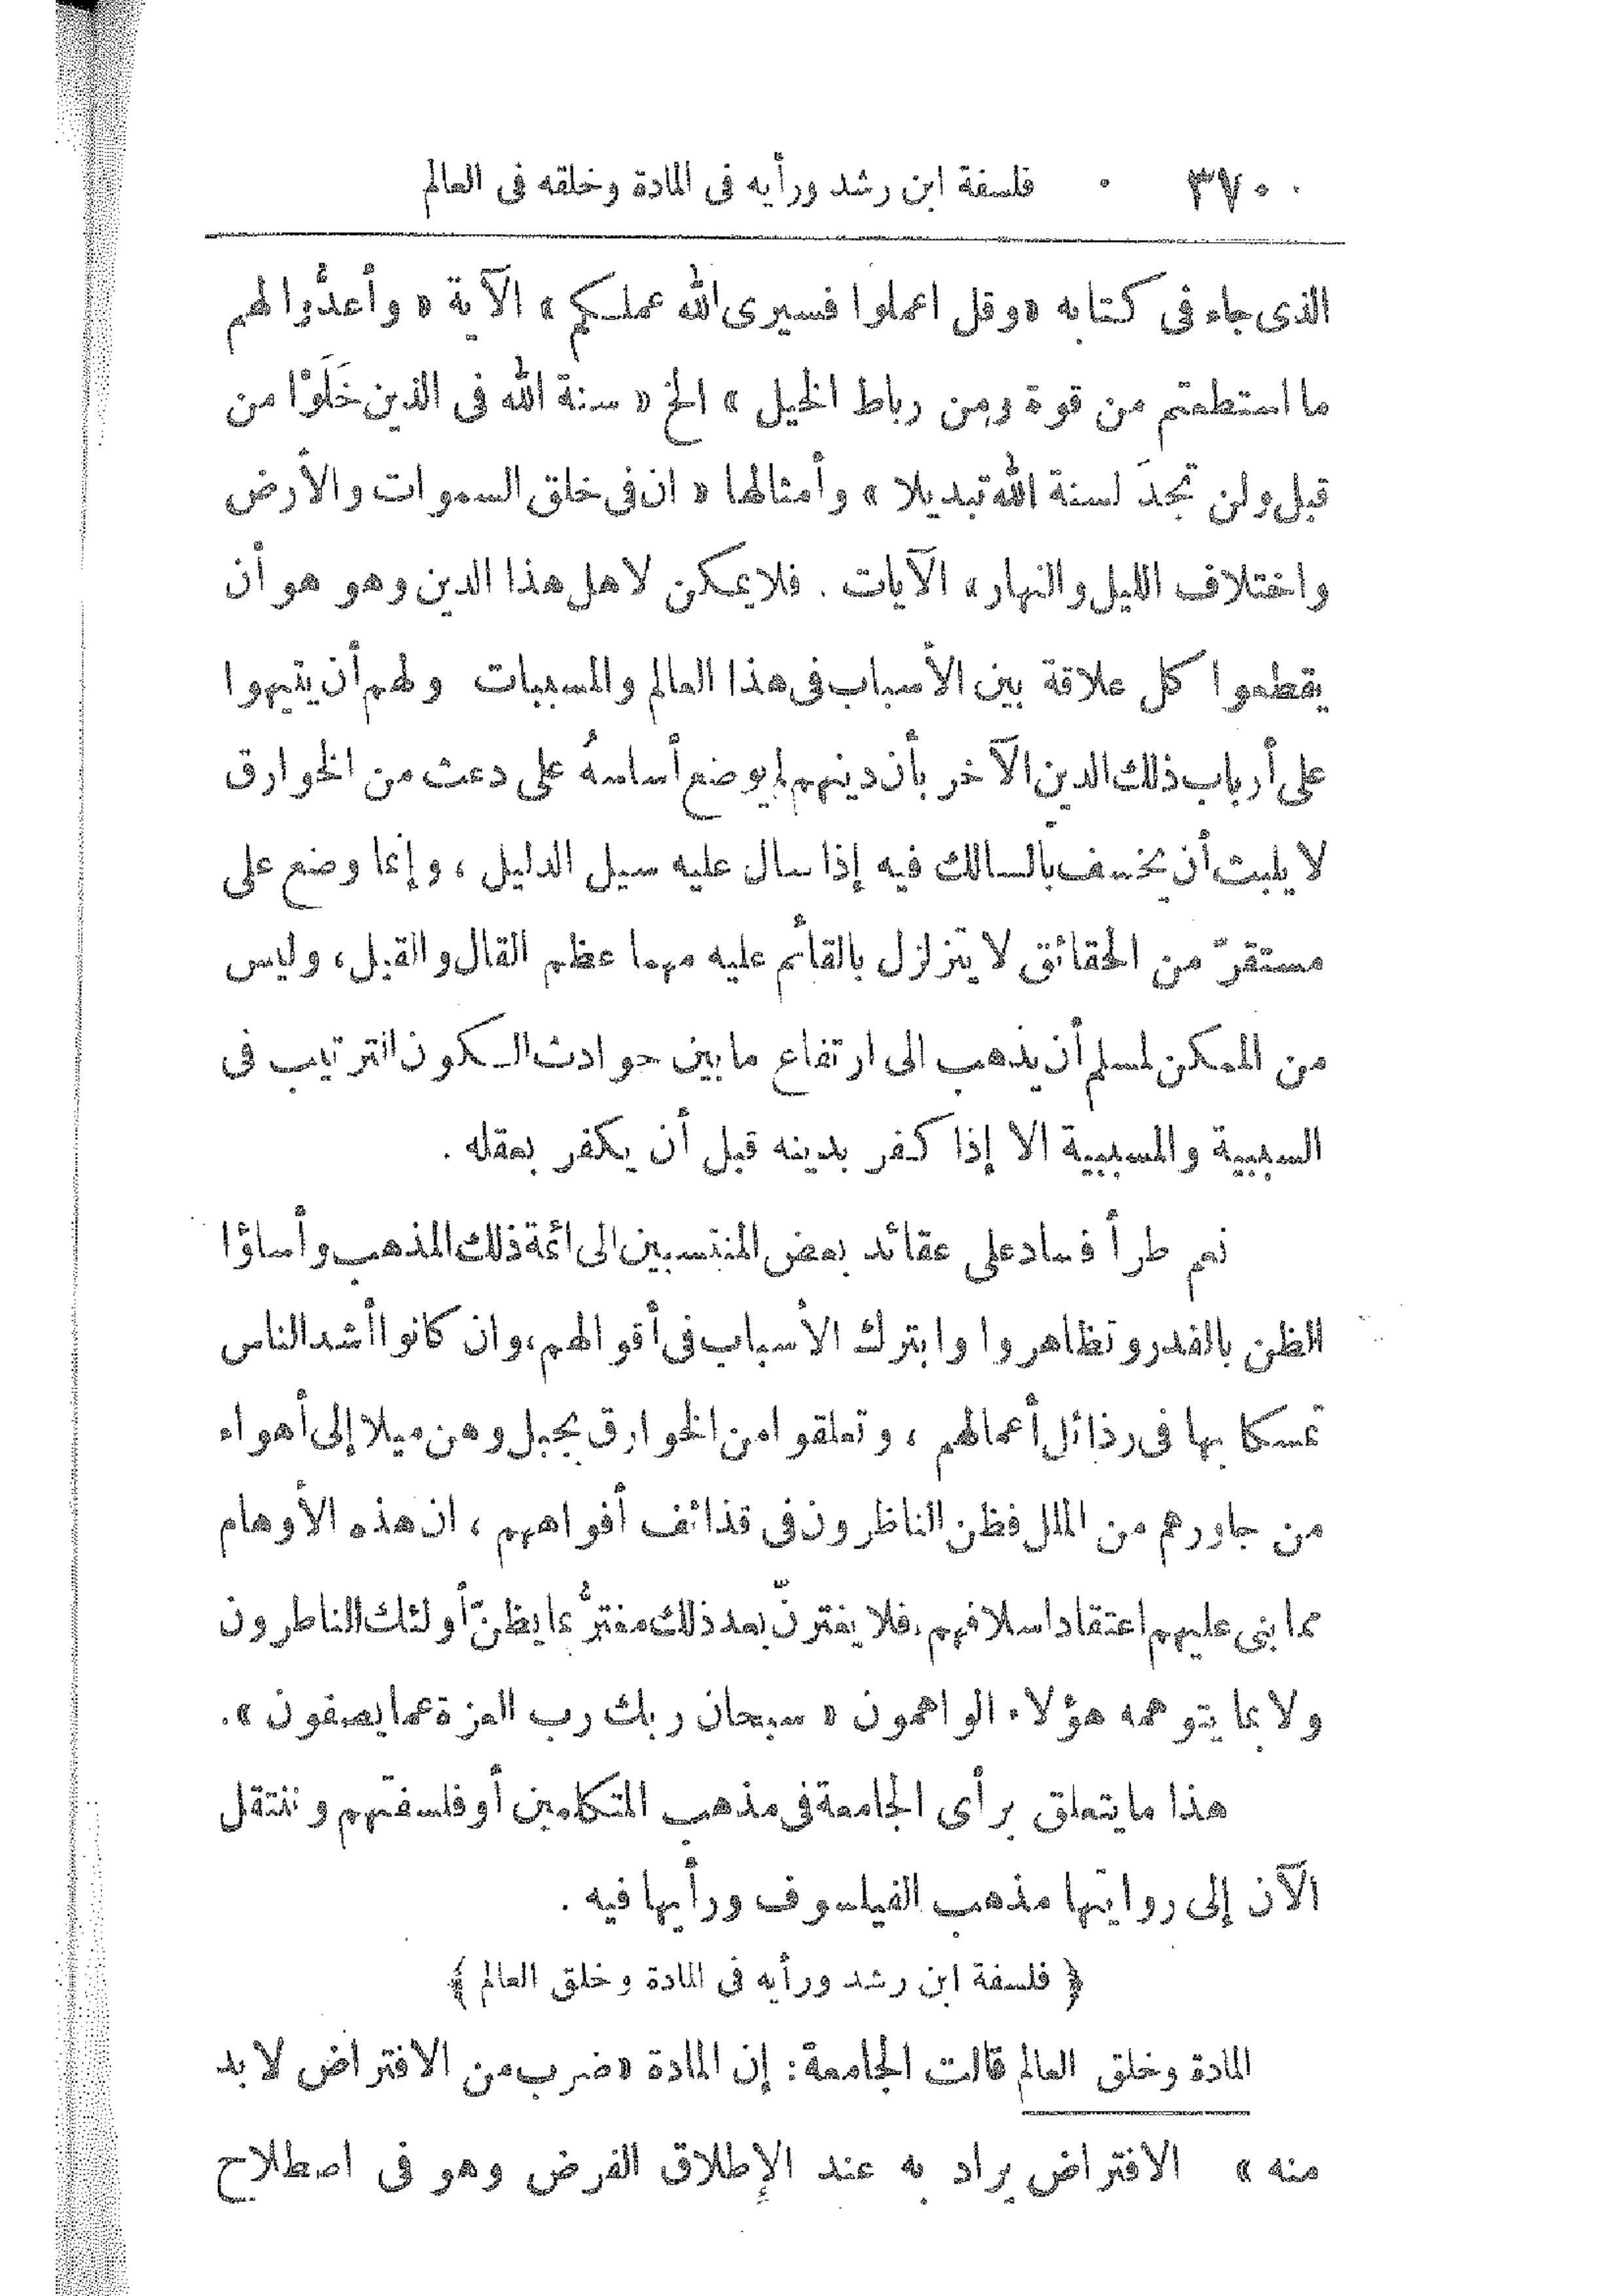 ٣٧٠ فلسفة ابن رشد ورأيه فى المادة وخلقه فى العالم
الذى جاء فى كتابه «وقل اعملوا فسيرى الله عملكم» الآية «وأعدُّوا لهم
ما استطعتم من قوة ومن رباط الخيل» الخ «سنة الله فى الذين خَلَوْا من
قبل ولن تجدَ لسنة الله تبديلا» وأمثالها «ان فى خلق السموات والأرض
واختلاف الليل والنهار» الآيات . فلا يمكن لاهل هذا الدين وهو هو أن
يقطعوا كل علاقة بين الأسباب فى هذا العالم والمسببات ولهم أن يتيهوا
على أرباب ذلك الدين الآخر بأن دينهم لم يوضع أساسهُ على دعث من الخوارق
لا يلبث أن يخسف بالسالك فيه إذا سال عليه سيل الدليل ، وإنما وضع على
مستقرّ من الحقائق لا يتزلزل بالقائم عليه مهما عظم القال والقيل، وليس
من الممكن لمسلم أن يذهب الى ارتفاع ما بين حوادث الكون الترتيب فى
السببية والمسببية الا إذا كفر بدينه قبل أن يكفر بعقله .
نعم طرأ فساد على عقائد بعض المنتسبين الى ائمة ذلك المذهب وأساؤا
الظن بالقدر وتظاهروا وابترك الأسباب فى أقوالهم، وان كانوا أشد الناس
تمسكا بها فى رذائل أعمالهم ، وتعلقوا من الخوارق بحبل وهن ميلا إلى أهواء
من جاورهم من الملل فظن الناظرون فى قذائف أفواههم ، ان هذه الأوهام
مما بنى عليهم اعتقاد اسلافهم. فلا يغترنّ بعد ذلك مغترٌّ بما يظنّ أولئك الناظرون
ولا بما يتوهمه هؤلاء الواهمون «سبحان ربك رب العزة عما يصفون» .
هذا ما يتعلق برأى الجامعة فى مذهب المتكلمين أو فلسفتهم وننتقل
الآن إلى روايتها مذهب الفيلسوف ورأيها فيه .
﴿ فلسفة ابن رشد ورأيه فى المادة وخلق العالم ﴾
المادة وخلق العالم قالت الجامعة: إن المادة «ضرب من الافتراض لا بد
منه» الافتراض يراد به عند الإطلاق الفرض وهو فى اصطلاح